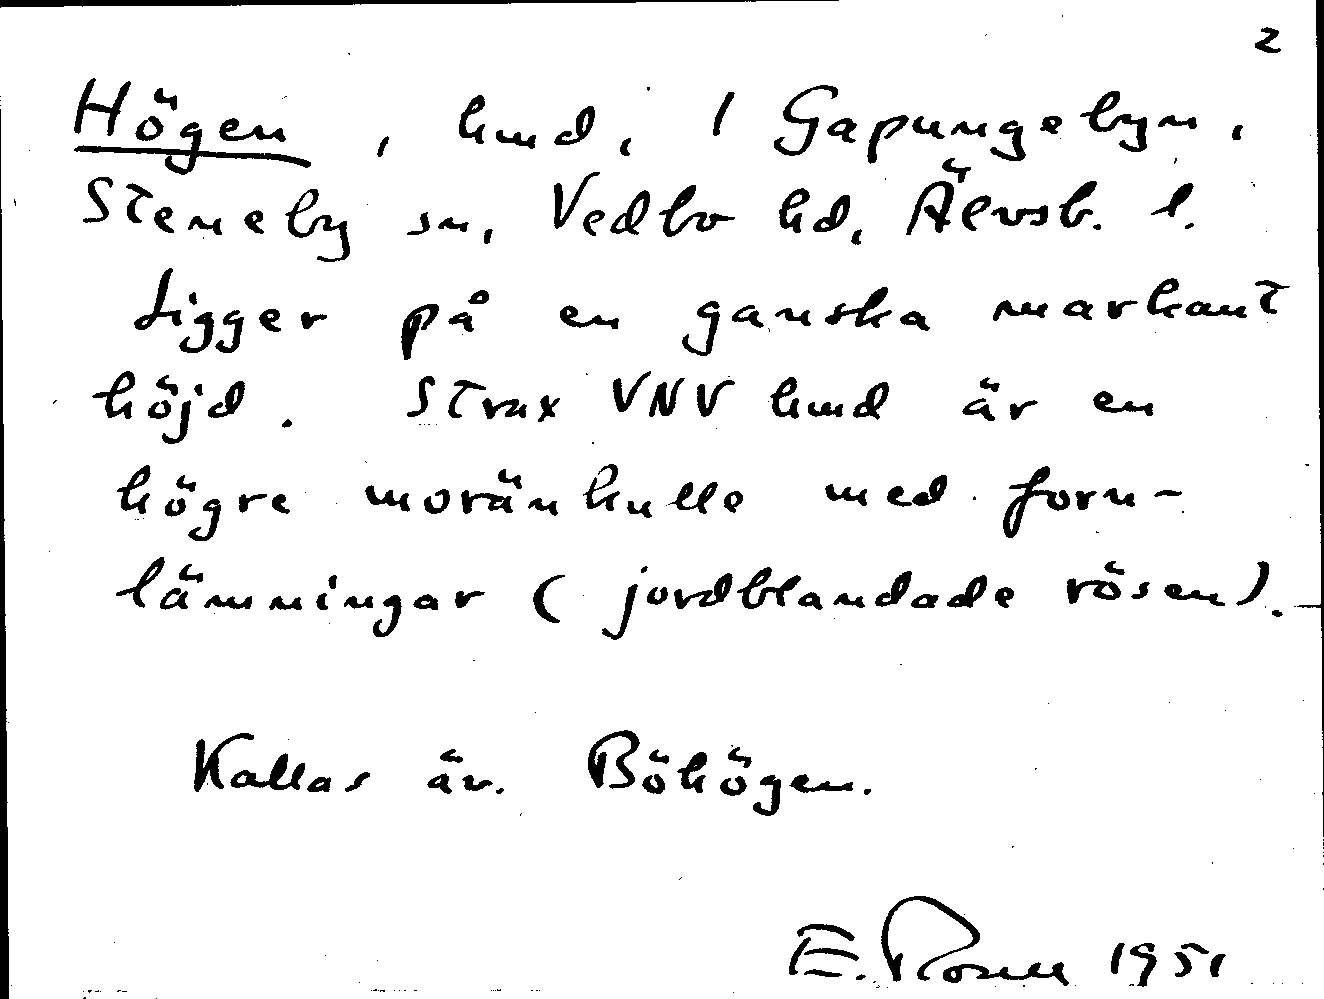 2
Högen, hmd, 1 Gapungebyn,
Steneby sn, Vedbo hd, Älvsb. l.
Ligger på en ganska markant
höjd. Strax VNV hmd är en
högre moränkulle med forn-
lämningar (jordblandade rösen).
Kallas äv. Böhögen.
E. 1951